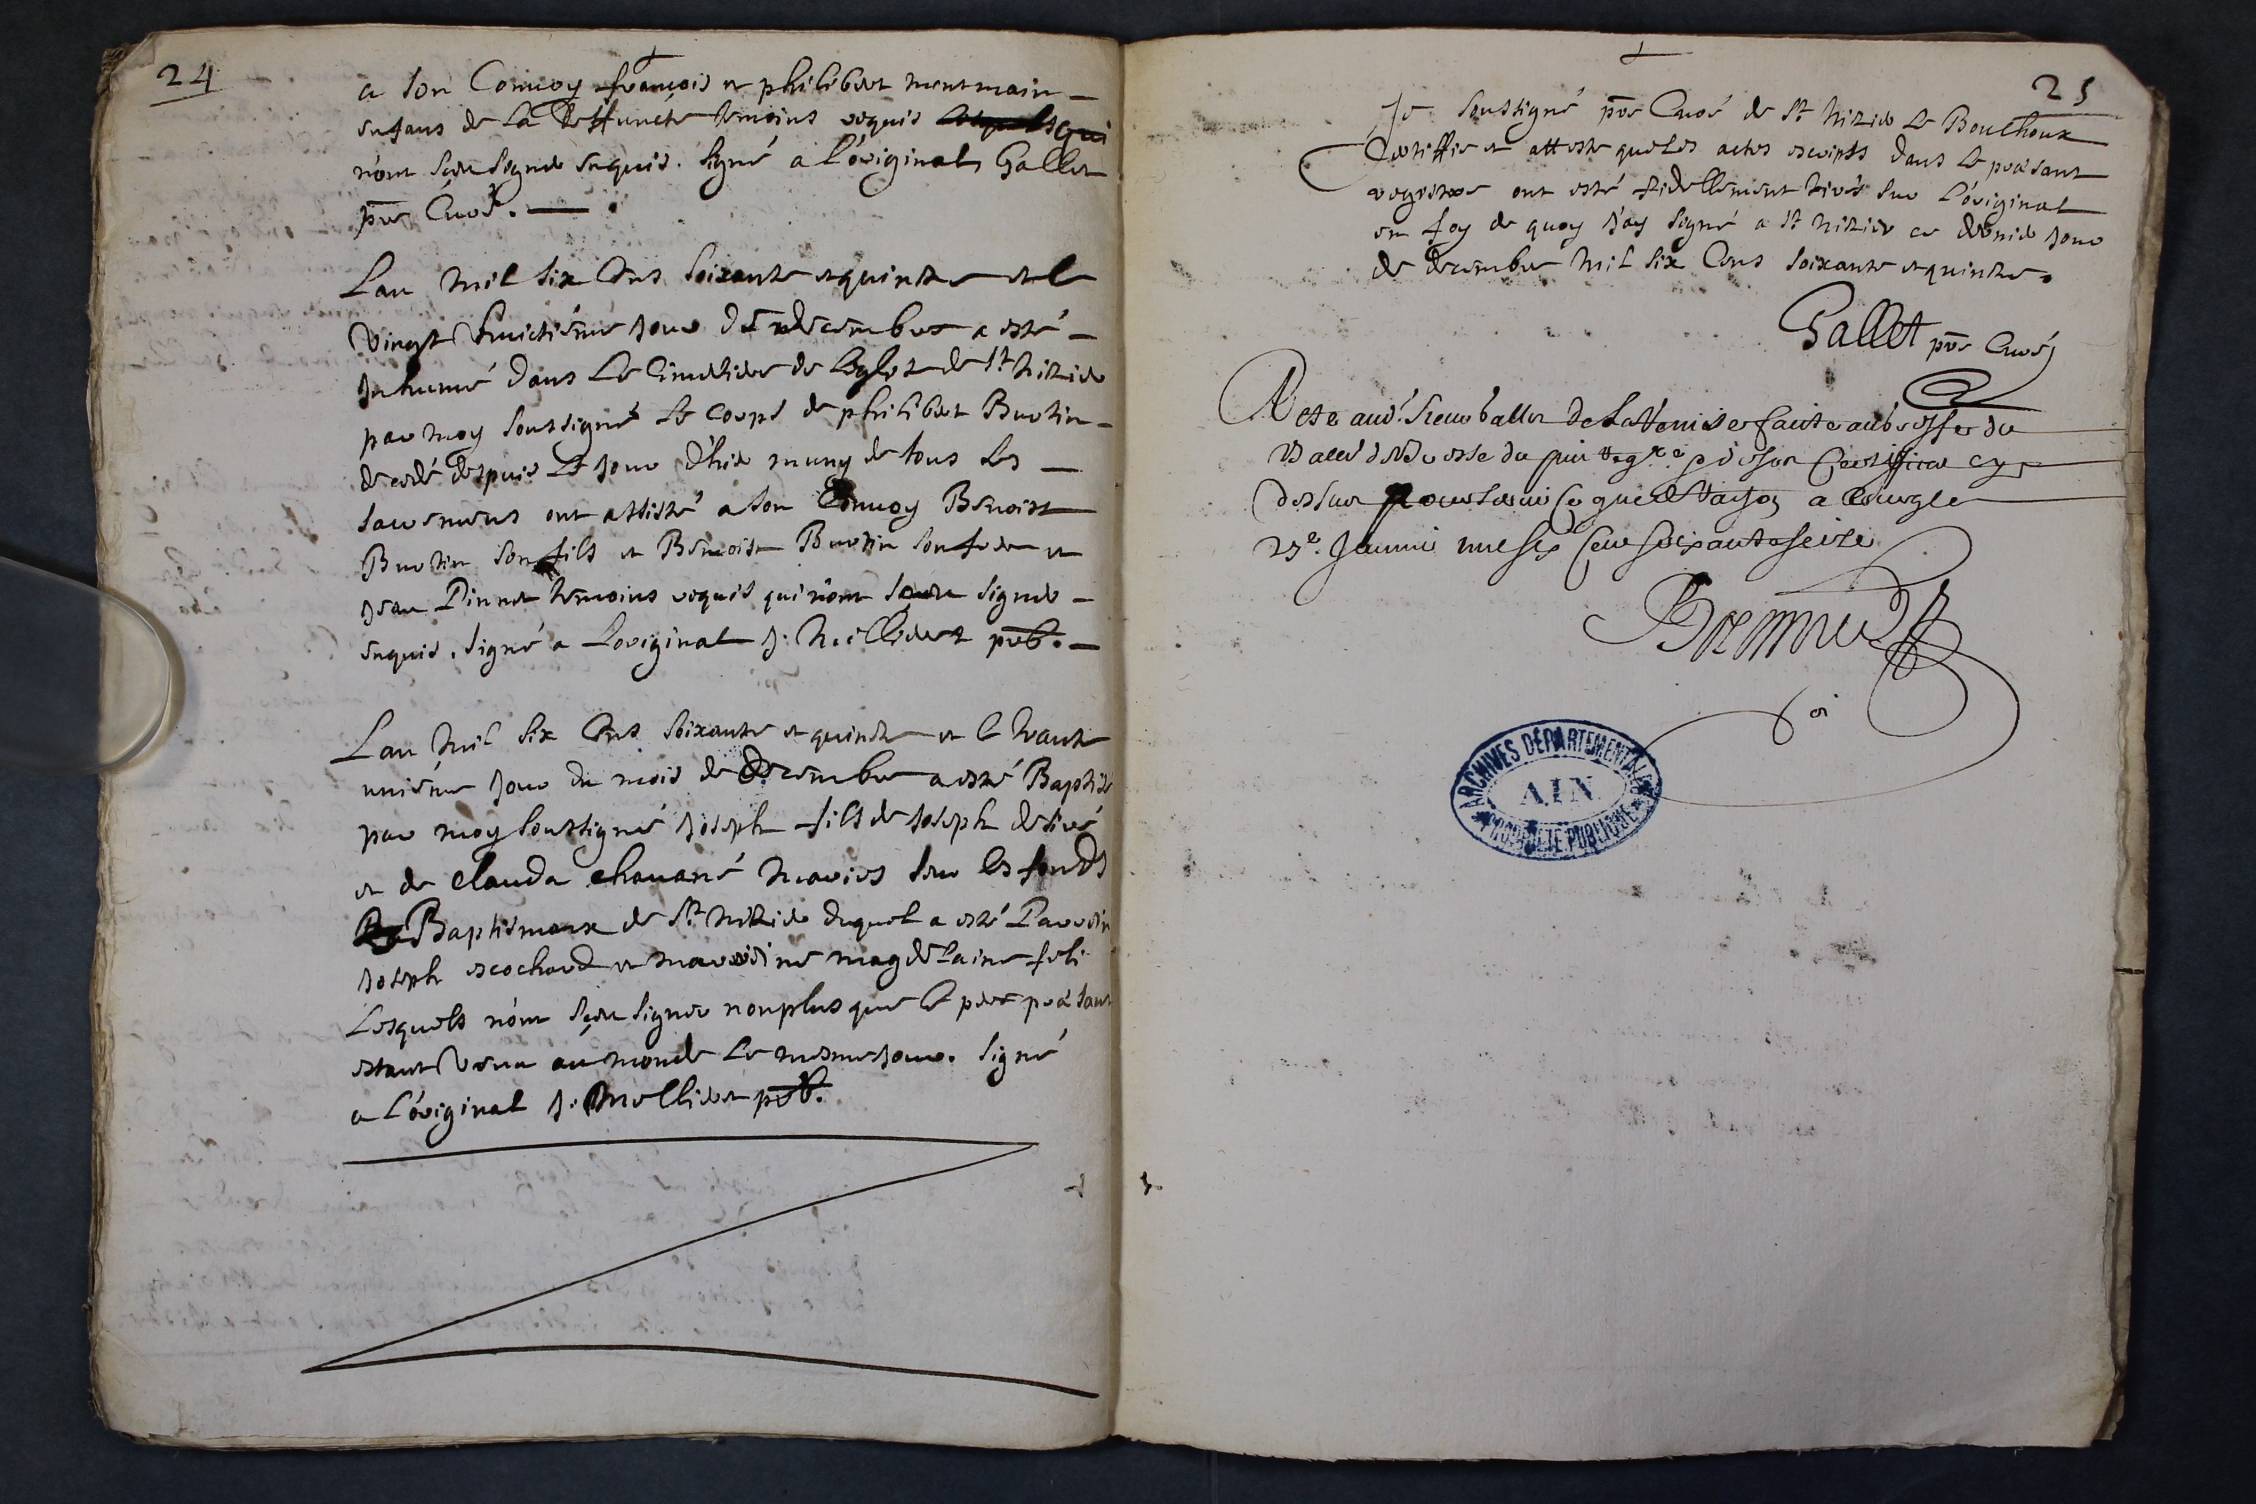 24
a son Convoy françois et philibert montmain
enfans de la deffuncte temoins requis lesquels qui
n'ont sceu signer enquis. signé a l'original Gallet
pre Curé.
Lan mil six Cens soixante et quinze et le
vingt huictiéme jour de decembre a esté
Inhumé dans Le Cimetiere de Leglise de st Nizier
par moy soussigné Le corps de philibert Burtin
decedé depuis Le jour d'hier muny de tous Les
sacremens ont assisté a son Convoy Benoist
Burtin son fils et Benoist Burtin son frere et
jean Pinnet temoins requis qui n'ont sceu signer
enquis. signé a Loriginal J. Meillieret prb.
Lan mil six Cens soixante et quinze et le trante
uniéme jour du mois de decembre a esté Baptisé
par moy soussigné joseph fils de joseph desiré
et de Clauda chavané mariés sur les fonds
Baptismaux de st Nizier duquel a esté Parrein
joseph escochard et marreine magdelaine feli
Lesquels n'ont sceu signer nonplus que le pere présant
estant venu au monde Le mesme jour. signé
a L'original J. Mellieret prb.
25
Je soussigné pre Curé de st Nizier Le Bouchoux
Certiffie et atteste que les actes escripts dans Le présant
registre ont esté fidellement tirés sur L'original
en foy de quoy j'ay signé a st Nizier ce dernier jour
de decembre mil six Cens soixante et quinze.
Gallet pre Curé
Acte aud. sieur Gallet de La remise faite au greffe du
du pnt regre
dessus pour servir ce que de raison a
23e. Janvier mil six Cens soixante seize
ARCHIVES DÉPARTEMENTALES
AIN
PROPRIÉTÉ PUBLIQUE